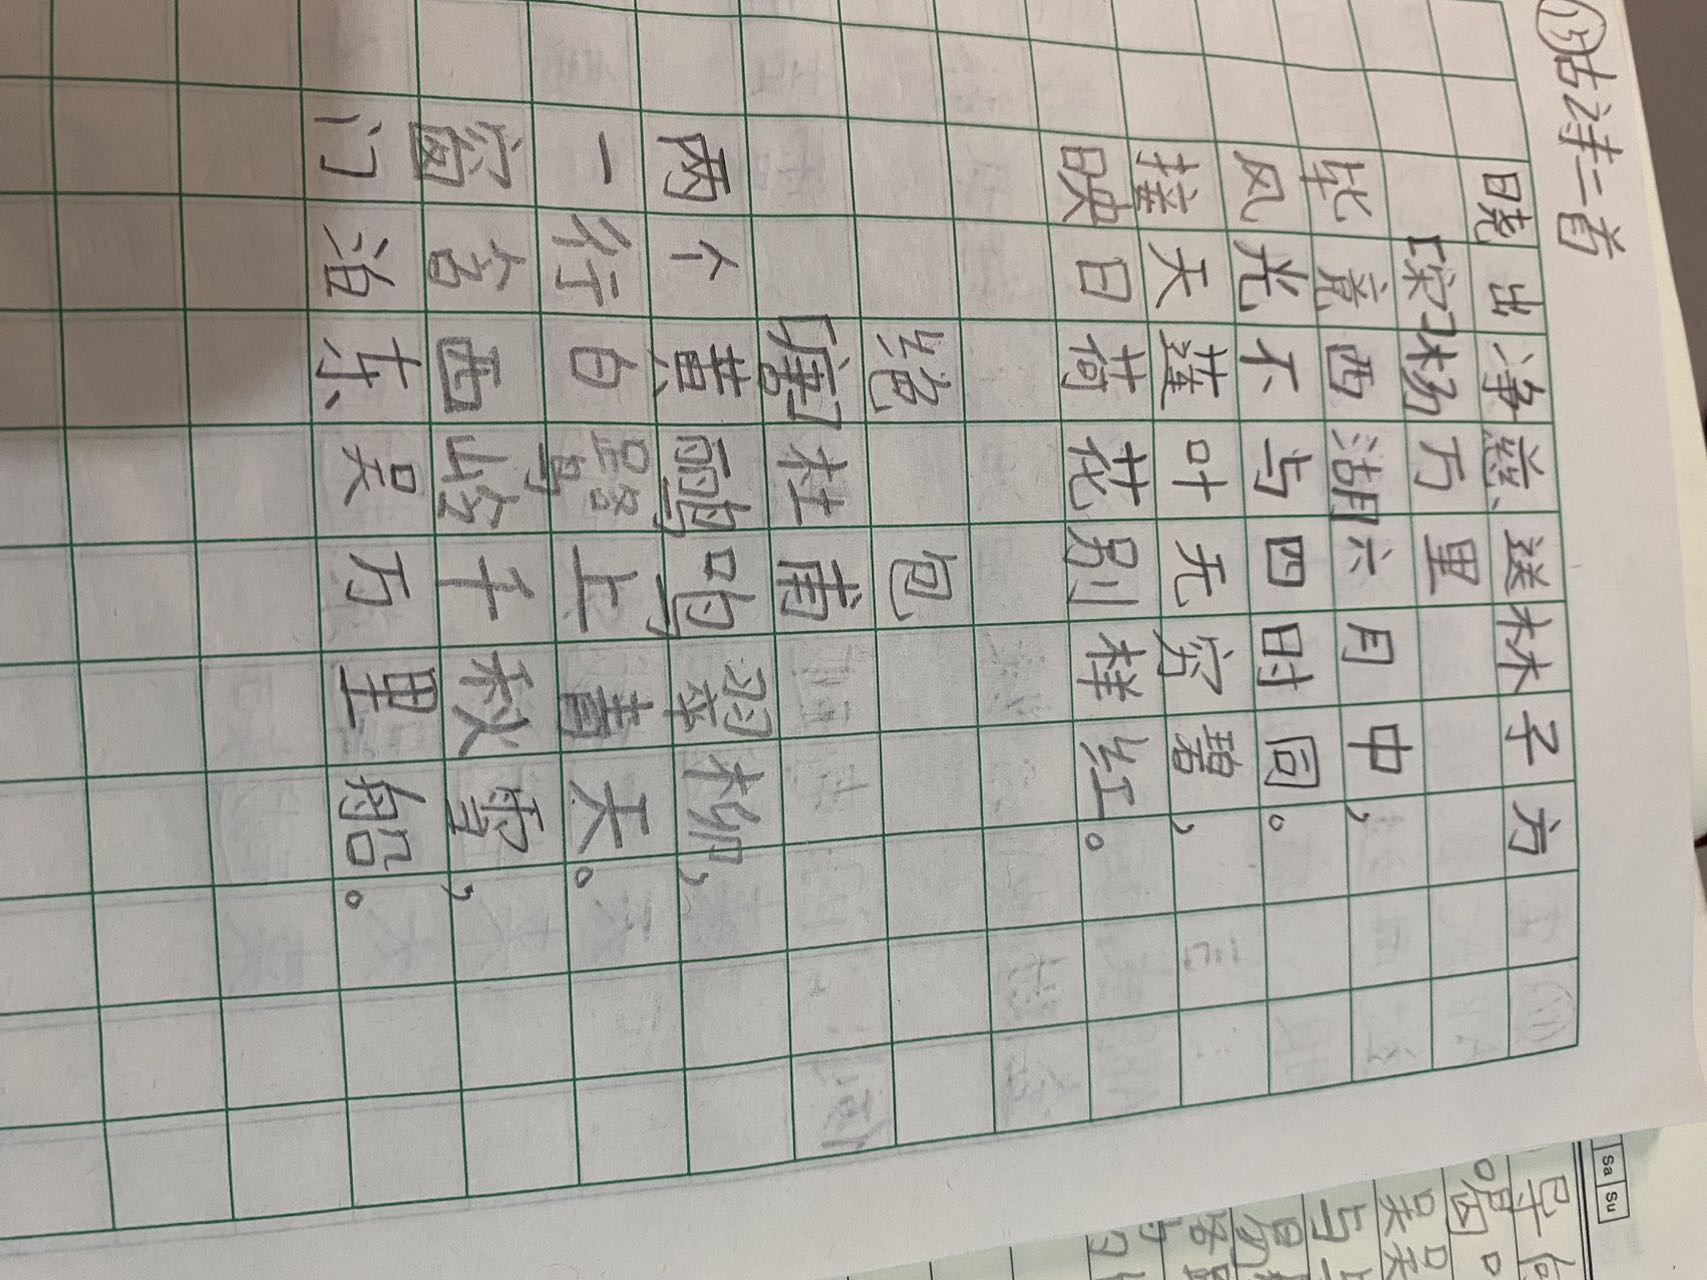 ⑮古诗二首
晓出净慈送林子方
[宋]杨万里
毕竟西湖六月中,
风光不与四时同。
接天莲叶无穷碧,
映日荷花别样红。
绝句
[唐]杜甫
两个黄鹂鸣翠柳,
一行白鹭上青天。
窗含西岭千秋雪,
门泊东吴万里船。
Sa Su